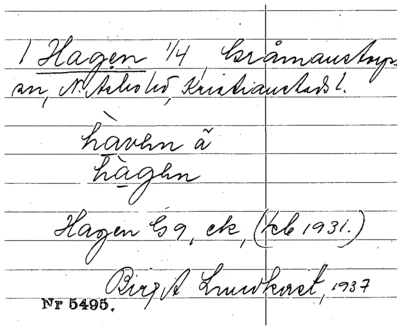 1 Hagen 1/4, Gråmanstorps
sn, N. Åsbo hd, Kristianstads l.
hàven ã
hàgen
Hagen G9, ek, (feb 1931.)
Birg A Lundkvist, 1937
Nr 5495.